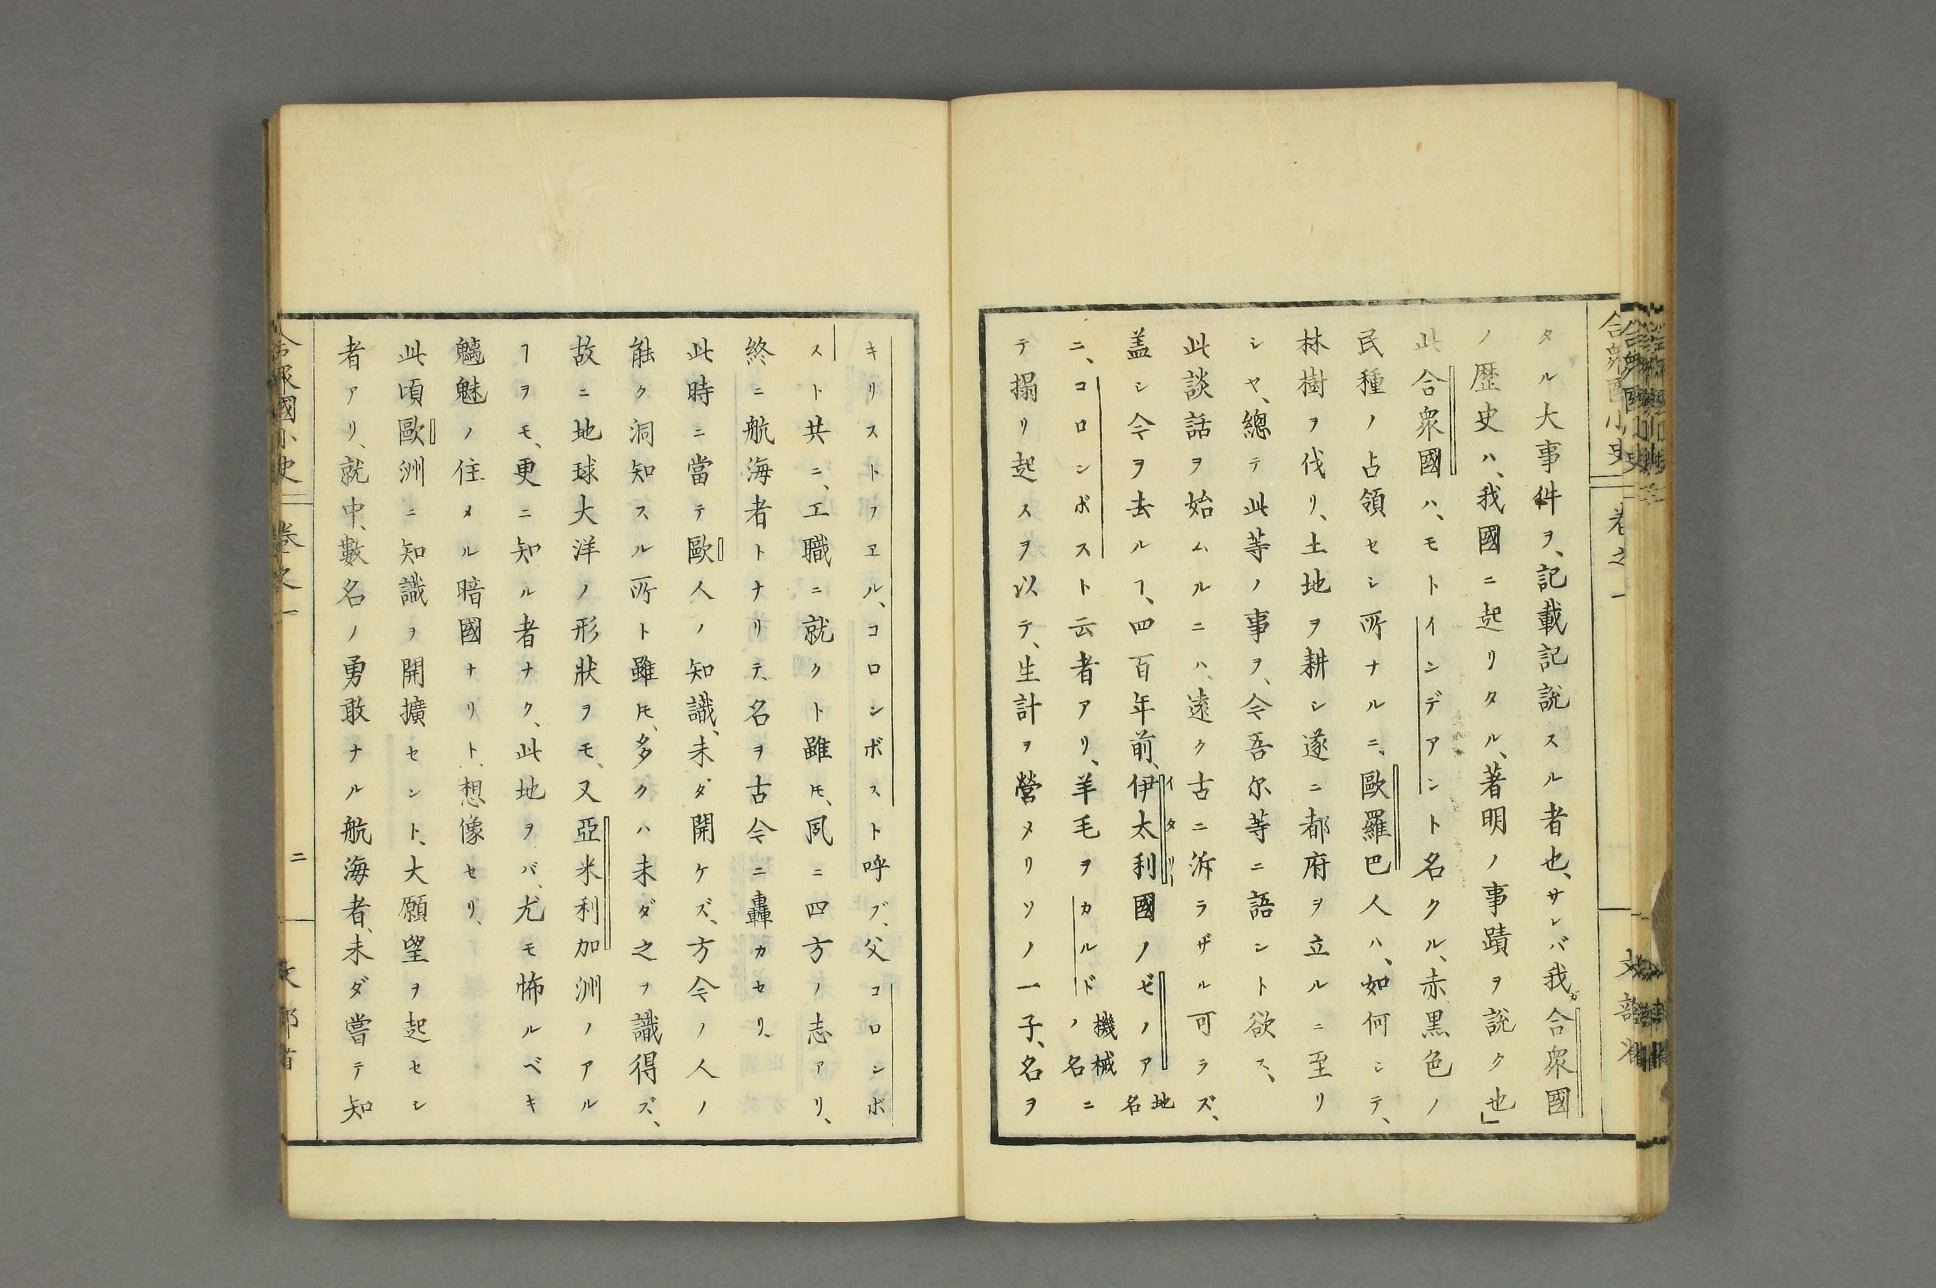 合衆國小史 卷之一 文部省
タル大事件ヲ、記載記説スル者也、サレバ我ガ合衆國
ノ歴史ハ、我國ニ起リタル、著明ノ事蹟ヲ説ク也」
此合衆國ハ、モトインデアント名クル、赤黒色ノ
民種ノ占領セシ所ナルニ、歐羅巴人ハ、如何シテ、
林樹ヲ伐リ、土地ヲ耕シ遂ニ都府ヲ立ルニ至リ
シヤ、總テ此等ノ事ヲ、今吾尓等ニ語ント欲ス、
此談話ヲ始ムルニハ、遠ク古ニ泝ラザル可ラズ、
蓋シ今ヲ去ルヿ、四百年前、伊太利國イタリーノゼノア地名
ニ、コロンボスト云者アリ、羊毛ヲカルド機械ノ名ニ
テ搨リ起スヲ以テ、生計ヲ營メリソノ一子、名ヲ
キリストフヱル、コロンボスト呼ブ、父コロンボ
スト共ニ、工職ニ就クト雖𪜈、夙ニ四方ノ志アリ、
終ニ航海者トナリテ、名ヲ古今ニ轟カセリ、
此時ニ當テ歐人ノ知識、未ダ開ケズ、方今ノ人ノ
能ク洞知スル所ト雖𪜈、多クハ未ダ之ヲ識得ズ、
故ニ地球大洋ノ形狀ヲモ、又亞米利加洲ノアル
ヿヲモ、更ニ知ル者ナク、此地ヲバ、尤モ怖ルベキ
魑魅ノ住メル暗國ナリト、想像セリ、
此頃歐洲ニ知識ヲ開擴セント、大願望ヲ起セシ
者アリ、就中、數名ノ勇敢ナル航海者、未ダ嘗テ知
合衆國小史 卷之一 二 文部省